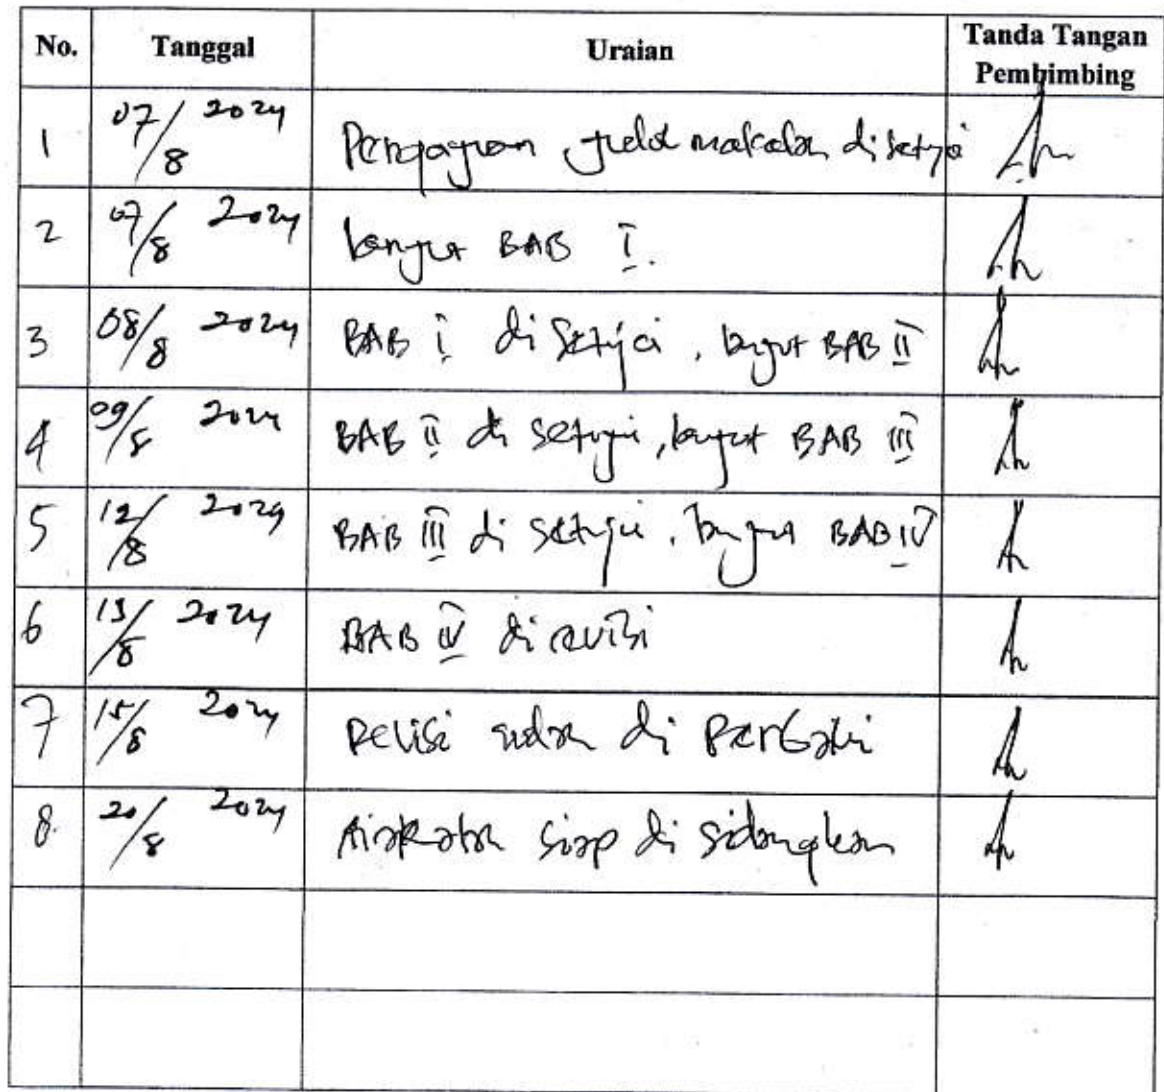 No. Tanggal Uraian Tanda Tangan Pembimbing
1 07/8 2024 Pengajuan judul makalah disetujui
2 07/8 2024 lanjut BAB I.
3 08/8 2024 BAB I di setujui, lanjut BAB II
4 09/8 2024 BAB II di setujui, lanjut BAB III
5 12/8 2024 BAB III di setujui, lanjut BAB IV
6 13/8 2024 BAB IV di revisi
7 15/8 2024 Revisi sudah di Perbaiki
8. 20/8 2024 siap di sidangkan